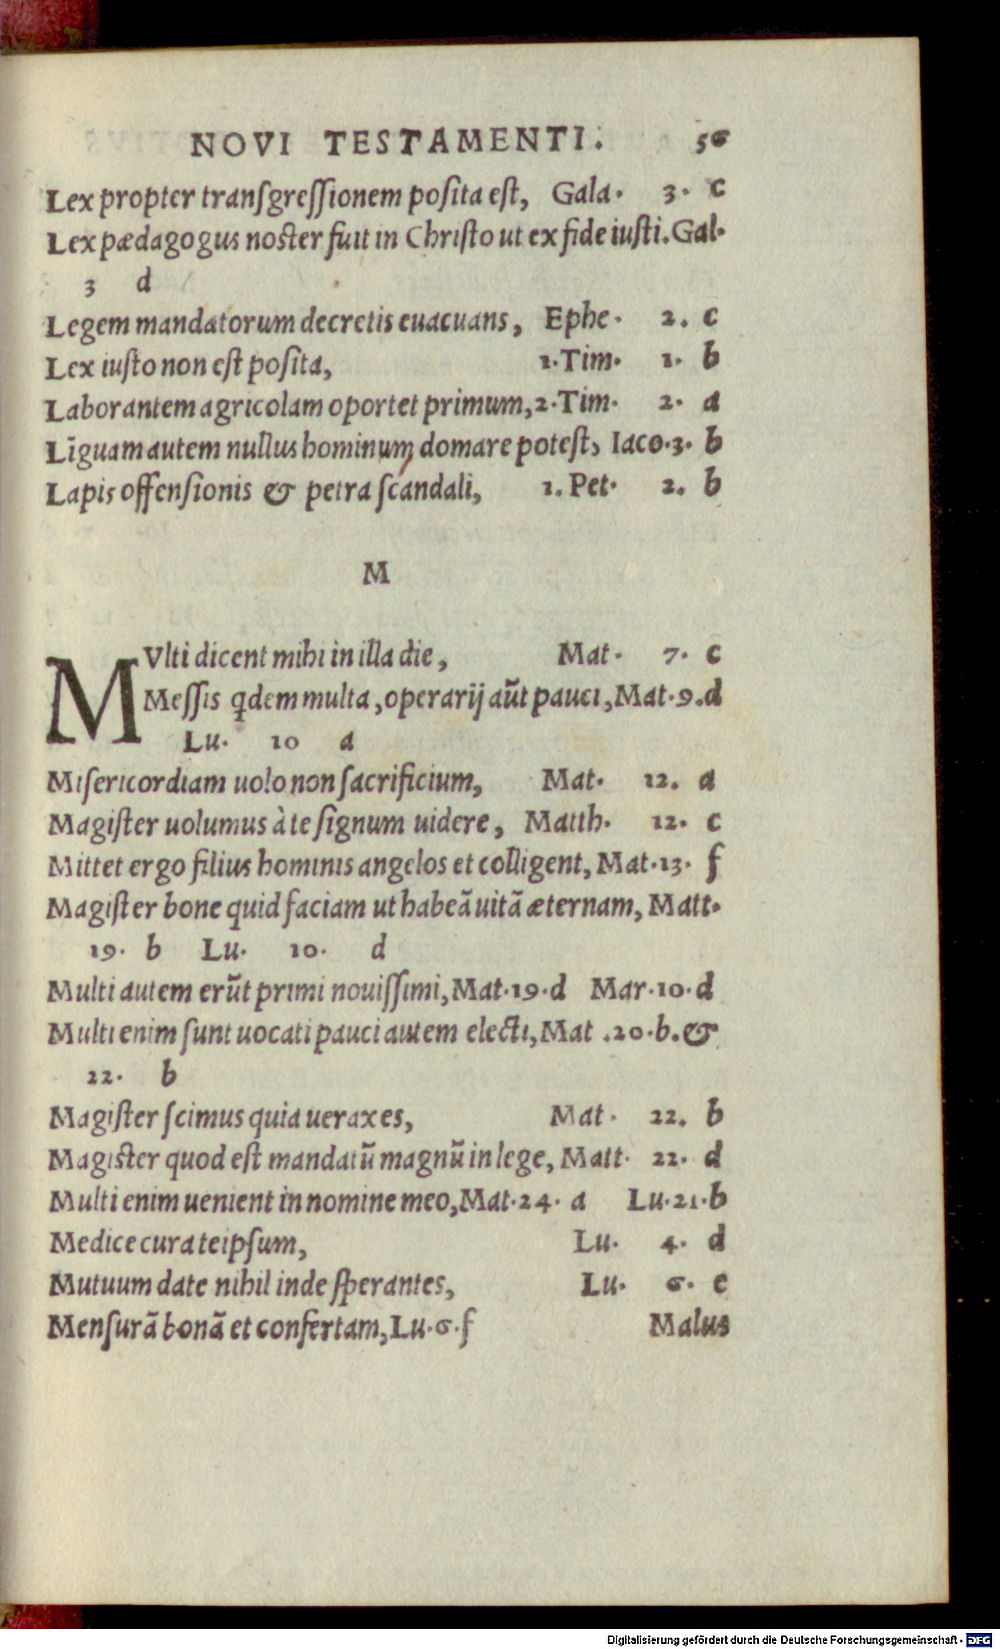 NOVI TESTAMENTI. 56
Lex propter transgreſſionem poſita eſt, Gala. 3. c
Lex pædagogus noſter fuit in Chriſto ut ex fide iuſti. Gal.
3 d
Legem mandatorum decretis euacuans, Ephe. 2. c
Lex iuſto non eſt poſita, 1. Tim. 1. b
Laborantem agricolam oportet primum, 2. Tim. 2. a
Lĩguam autem nullus hominum domare poteſt, Iaco. 3. b
Lapis offenſionis & petra ſcandali, 1. Pet. 2. b
M
MVlti dicent mihi in illa die, Mat. 7. c
Meſſis qdem multa, operarij aũt pauci, Mat. 9. d
Lu. 10 a
Miſericordiam uolo non ſacrificium, Mat. 12. a
Magiſter uolumus à te ſignum uidere, Matth. 12. c
Mittet ergo filius hominis angelos et colligent, Mat. 13. f
Magiſter bone quid faciam ut habeã uitã æternam, Matt.
19. b Lu. 10. d
Multi autem erũt primi nouiſſimi, Mat. 19. d Mar. 10. d
Multi enim ſunt uocati pauci autem electi, Mat. 20. b. &
22. b
Magiſter ſcimus quia uerax es, Mat. 22. b
Magiſter quod eſt mandatũ magnũ in lege, Matt. 22. d
Multi enim uenient in nomine meo, Mat. 24. a Lu. 21. b
Medice cura teipſum, Lu. 4. d
Mutuum date nihil inde ſperantes, Lu. 6. e
Menſurã bonã et confertam, Lu. 6. f Malus
Digitalisierung gefördert durch die Deutsche Forschungsgemeinschaft - DFG